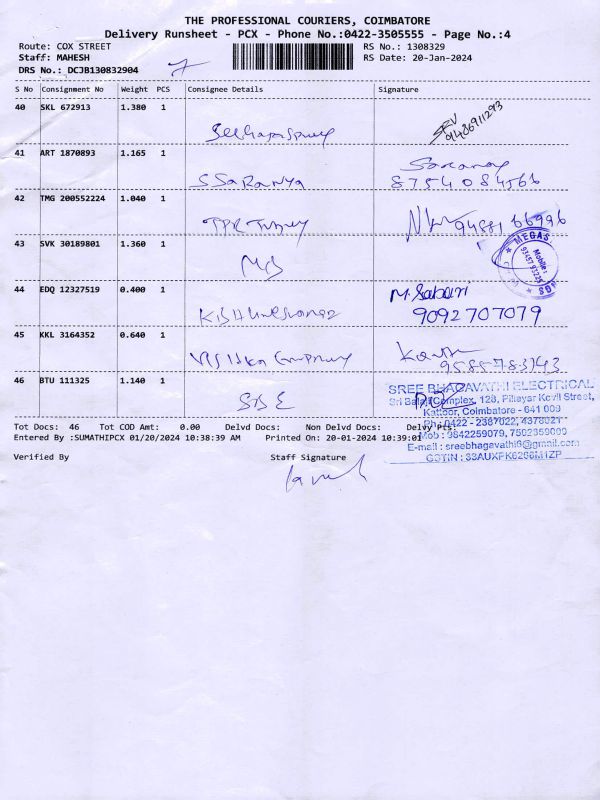 THE PROFESSIONAL COURIERS, COIMBATORE
Delivery Runsheet - PCX - Phone No.:0422-3505555 - Page No.:4
Route: COX STREET
RS No.: 1308329
Staff: MAHESH
RS Date: 20-Jan-2024
DRS No.: DCJB130832904
7
S No Consignment No Weight PCS Consignee Details Signature
40 SKL 672913 1.380 1
SRV
9486911293
41 ART 1870893 1.165 1
S SaRanya Saranay
8754084566
42 TMG 200552224 1.040 1
94881 66996
43 SVK 30189801 1.360 1
MEGAS
Mobile:
44 EDQ 12327519 0.400 1
M. Sabari
9092707079
45 KKL 3164352 0.640 1
9585783143
46 BTU 111325 1.140 1
SBE
SREE BHAGAVATHI ELECTRICAL
Sri Balaji Complex, 128, Pillayar Kovil Street,
Kattoor, Coimbatore - 641 009
Ph : 0422 - 2387022, 4378021
Mob : 9842259079, 7502359000
E-mail : sreebhagavathi6@gmail.com
GSTIN : 33AUXPK6206M1ZP
Tot Docs: 46 Tot COD Amt: 0.00 Delvd Docs: Non Delvd Docs: Delvy Pts:
Entered By :SUMATHIPCX 01/20/2024 10:38:39 AM Printed On: 20-01-2024 10:39:01
Verified By Staff Signature